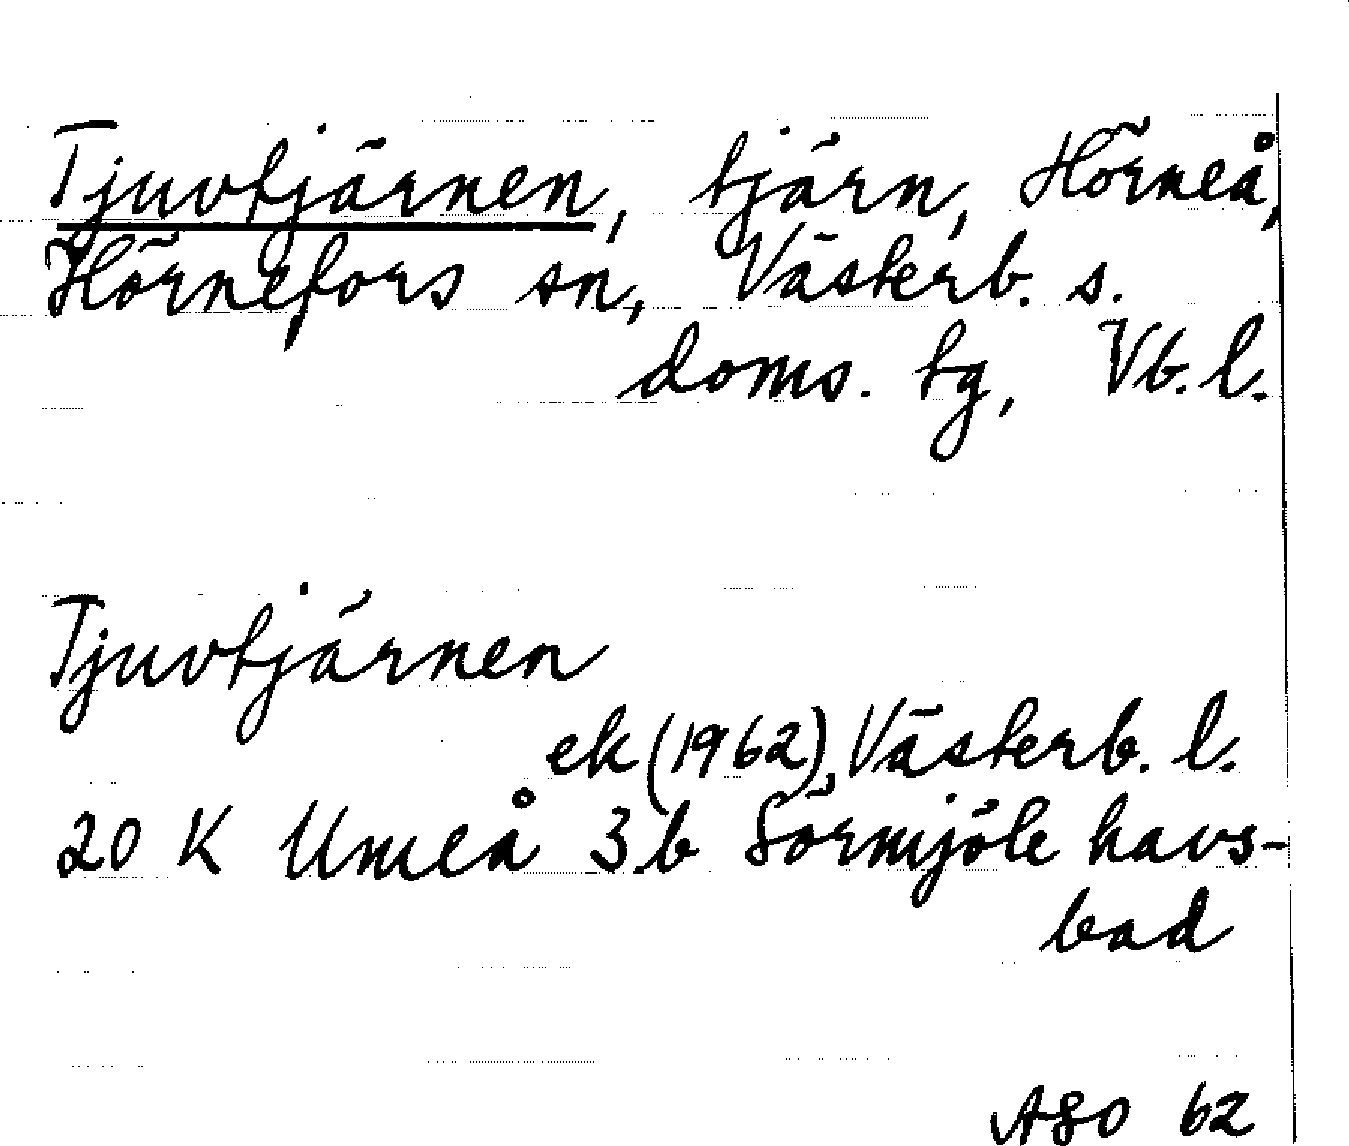 Tjuvtjärnen, tjärn, Hörneå,
Hörnefors sn, Västerb. s.
doms. tg, Vb. l.
Tjuvtjärnen
ek (1962), Västerb. l.
20 K Umeå 3b Sörmjöle havs-
bad
ASO 62